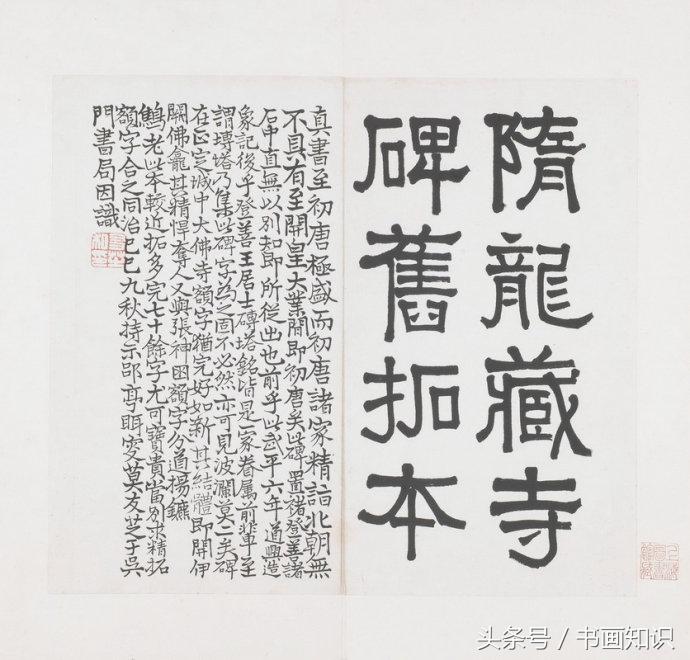 隋龍藏寺
碑舊拓本
真書至初唐極盛而初唐諸家精詣北朝無
不具有至開皇大業間即初唐矣此碑置褚登善諸
石中直無以別知即所從出也前乎此武平六年道興造
象記後乎登善王居士磚塔銘皆是一家眷屬前輩至
謂塼塔乃集此碑字為之固不必然亦可見波瀾莫二矣碑
在正定城中大佛寺額字猶完好如新其結體即開伊
闕佛龕其精悍奪人又與張神囧額字分道揚鑣
老此本較近拓多完七十餘字尤可寶貴當別求精拓
額字合之同治己巳九秋持示郘亭眲叟莫友芝于吳
門書局因識
头条号 / 书画知识